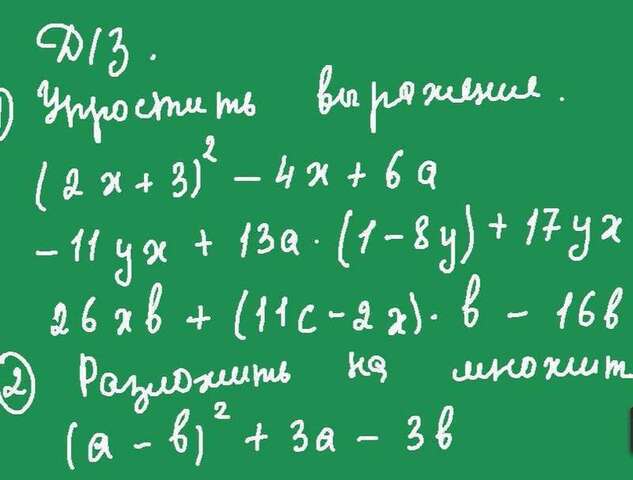 Д/З.
1) Упростить выражение.
(2x+3)² - 4x + 6a
- 11yx + 13a · (1 - 8y) + 17yx
26xb + (11c - 2x) · b - 16b
2 Разложить на множит
(a - b)² + 3a - 3b